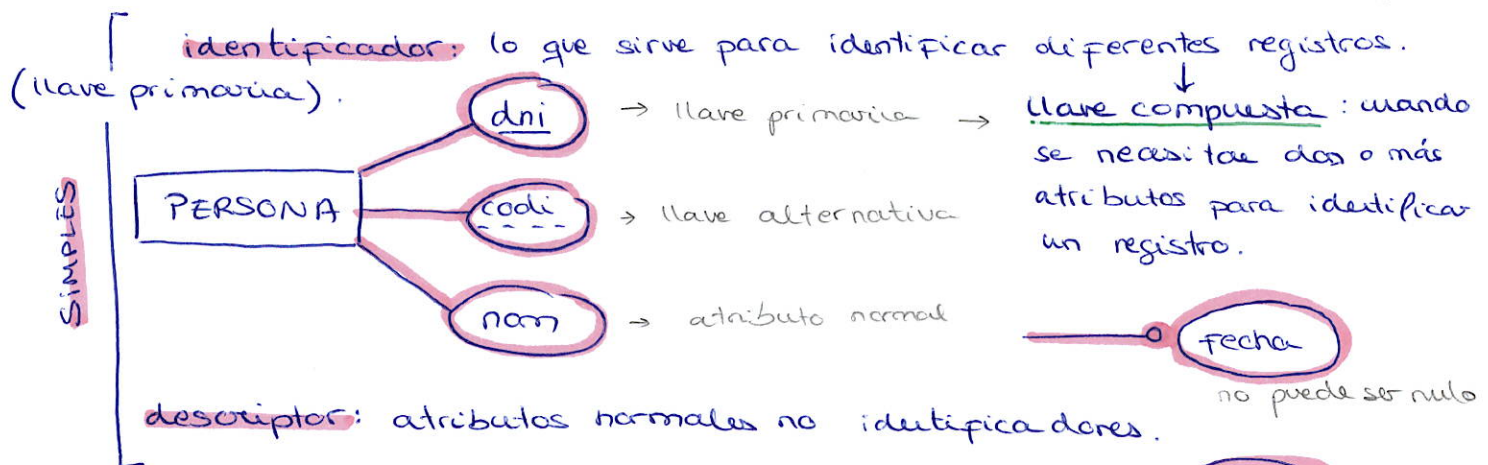 identificador: lo que sirve para identificar diferentes registros.
(llave primaria).
↓
dni → llave primaria → llave compuesta: cuando
se necesitae dos o más
atributos para identificar
un registro.
SIMPLES
PERSONA
codi → llave alternativa
nom → atributo normal
fecha
no puede ser nulo
descriptor: atributos normales no identificadores.